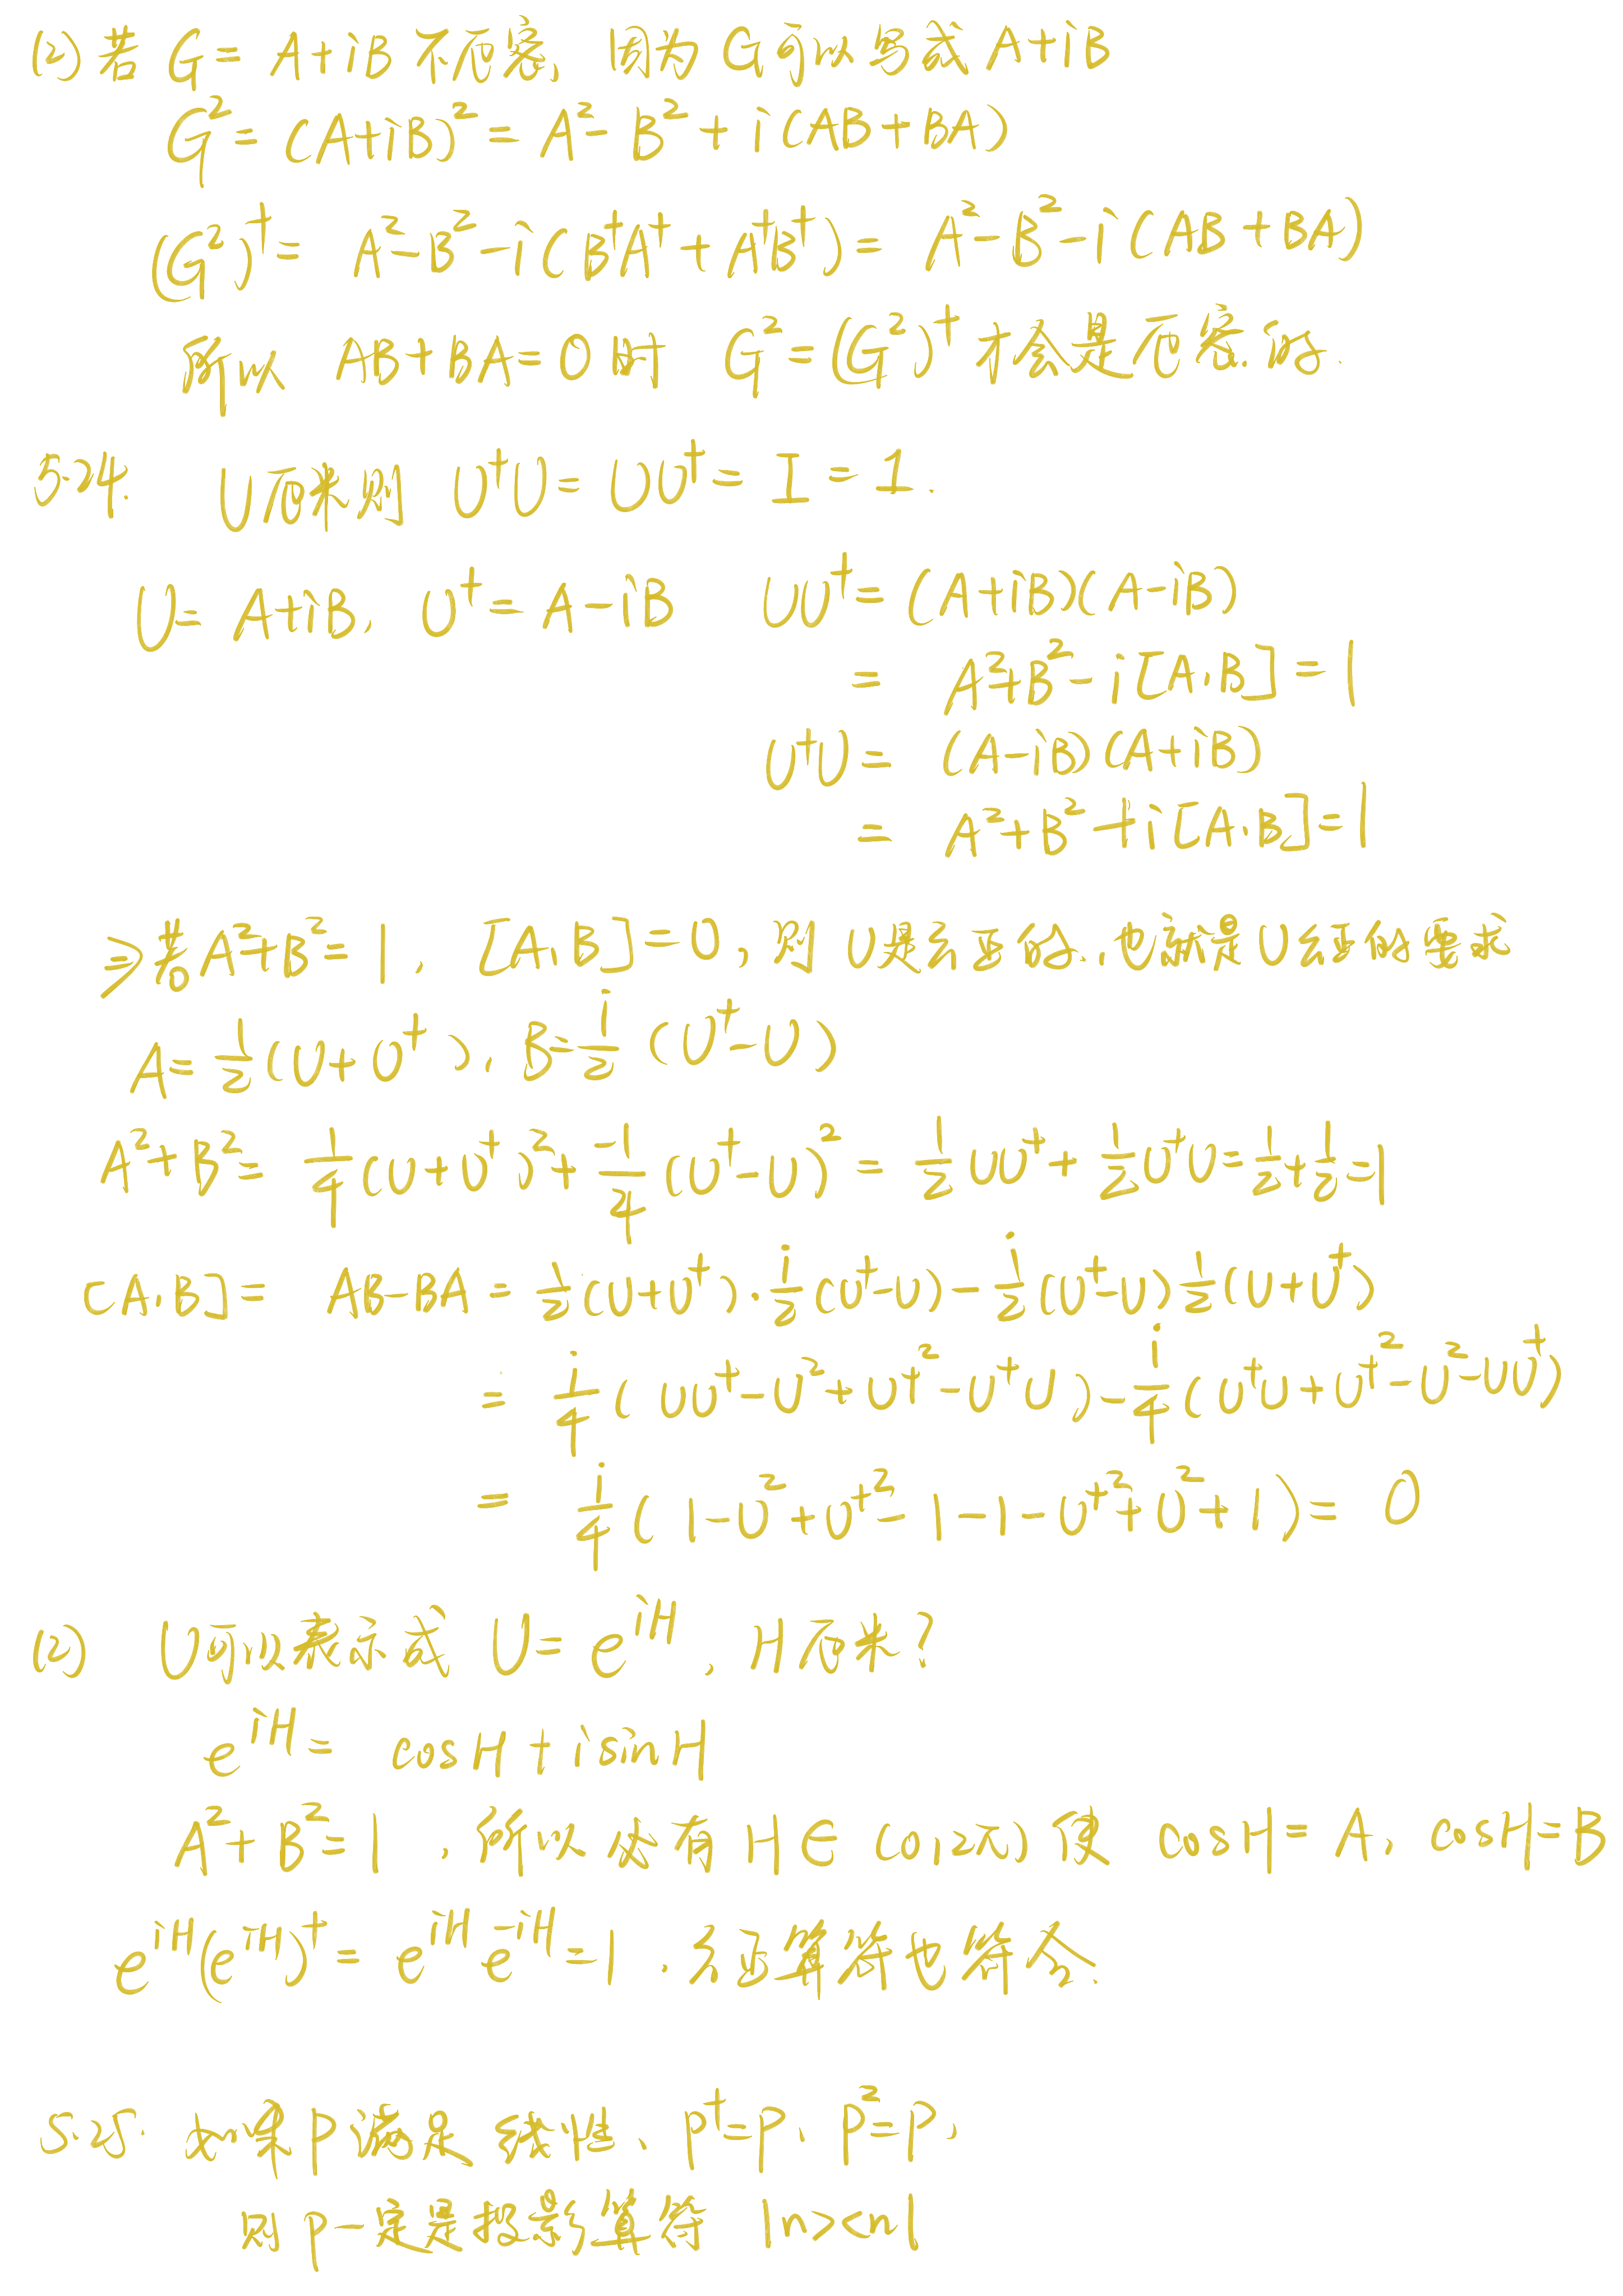 (2) 若 G = A+iB 不厄密, 因为 G 可以写成 A+iB
G² = (A+iB)² = A² - B² + i(AB+BA)
(G²)† = A² - B² - i(B†A† + A†B†) = A² - B² - i(AB+BA)
所以 AB+BA=0 时 G² = (G²)† 才会是厄密的.
5.24. U 厄米则 U†U = UU† = I = 1.
U = A+iB, U† = A-iB UU† = (A+iB)(A-iB)
= A²+B² - i[A,B] = 1
U†U = (A-iB)(A+iB)
= A²+B² + i[A,B] = 1
⇒ 若 A²+B²=1, [A,B]=0, 则 U 是幺正的, 也就是 U 幺正的要求
A = 1/2 (U+U†), B = i/2 (U†-U)
A²+B² = 1/4 (U+U†)² + -1/4 (U†-U)² = 1/2 UU† + 1/2 U†U = 1/2 + 1/2 = 1
[A,B] = AB-BA = 1/2 (U+U†)·i/2 (U†-U) - i/2 (U†-U) 1/2 (U+U†)
= i/4 (UU† - U² + U†² - U†U) - i/4 (U†U + U†² - U² - UU†)
= i/4 (1 - U² + U†² - 1 - 1 - U†² + U² + 1) = 0
(2) U 可以表示成 U = e^{iH}, H 厄米?
e^{iH} = cosH + i sinH
A²+B²=1, 所以必有 H∈(0,2π) 使 cosH=A, cosH=B
e^{iH}(e^{iH})† = e^{iH} e^{-iH} = 1, 幺正算符也符合.
5.25. 如果 P 满足线性、P†=P、P²=P,
则 P 一定是投影算符 |n><n|